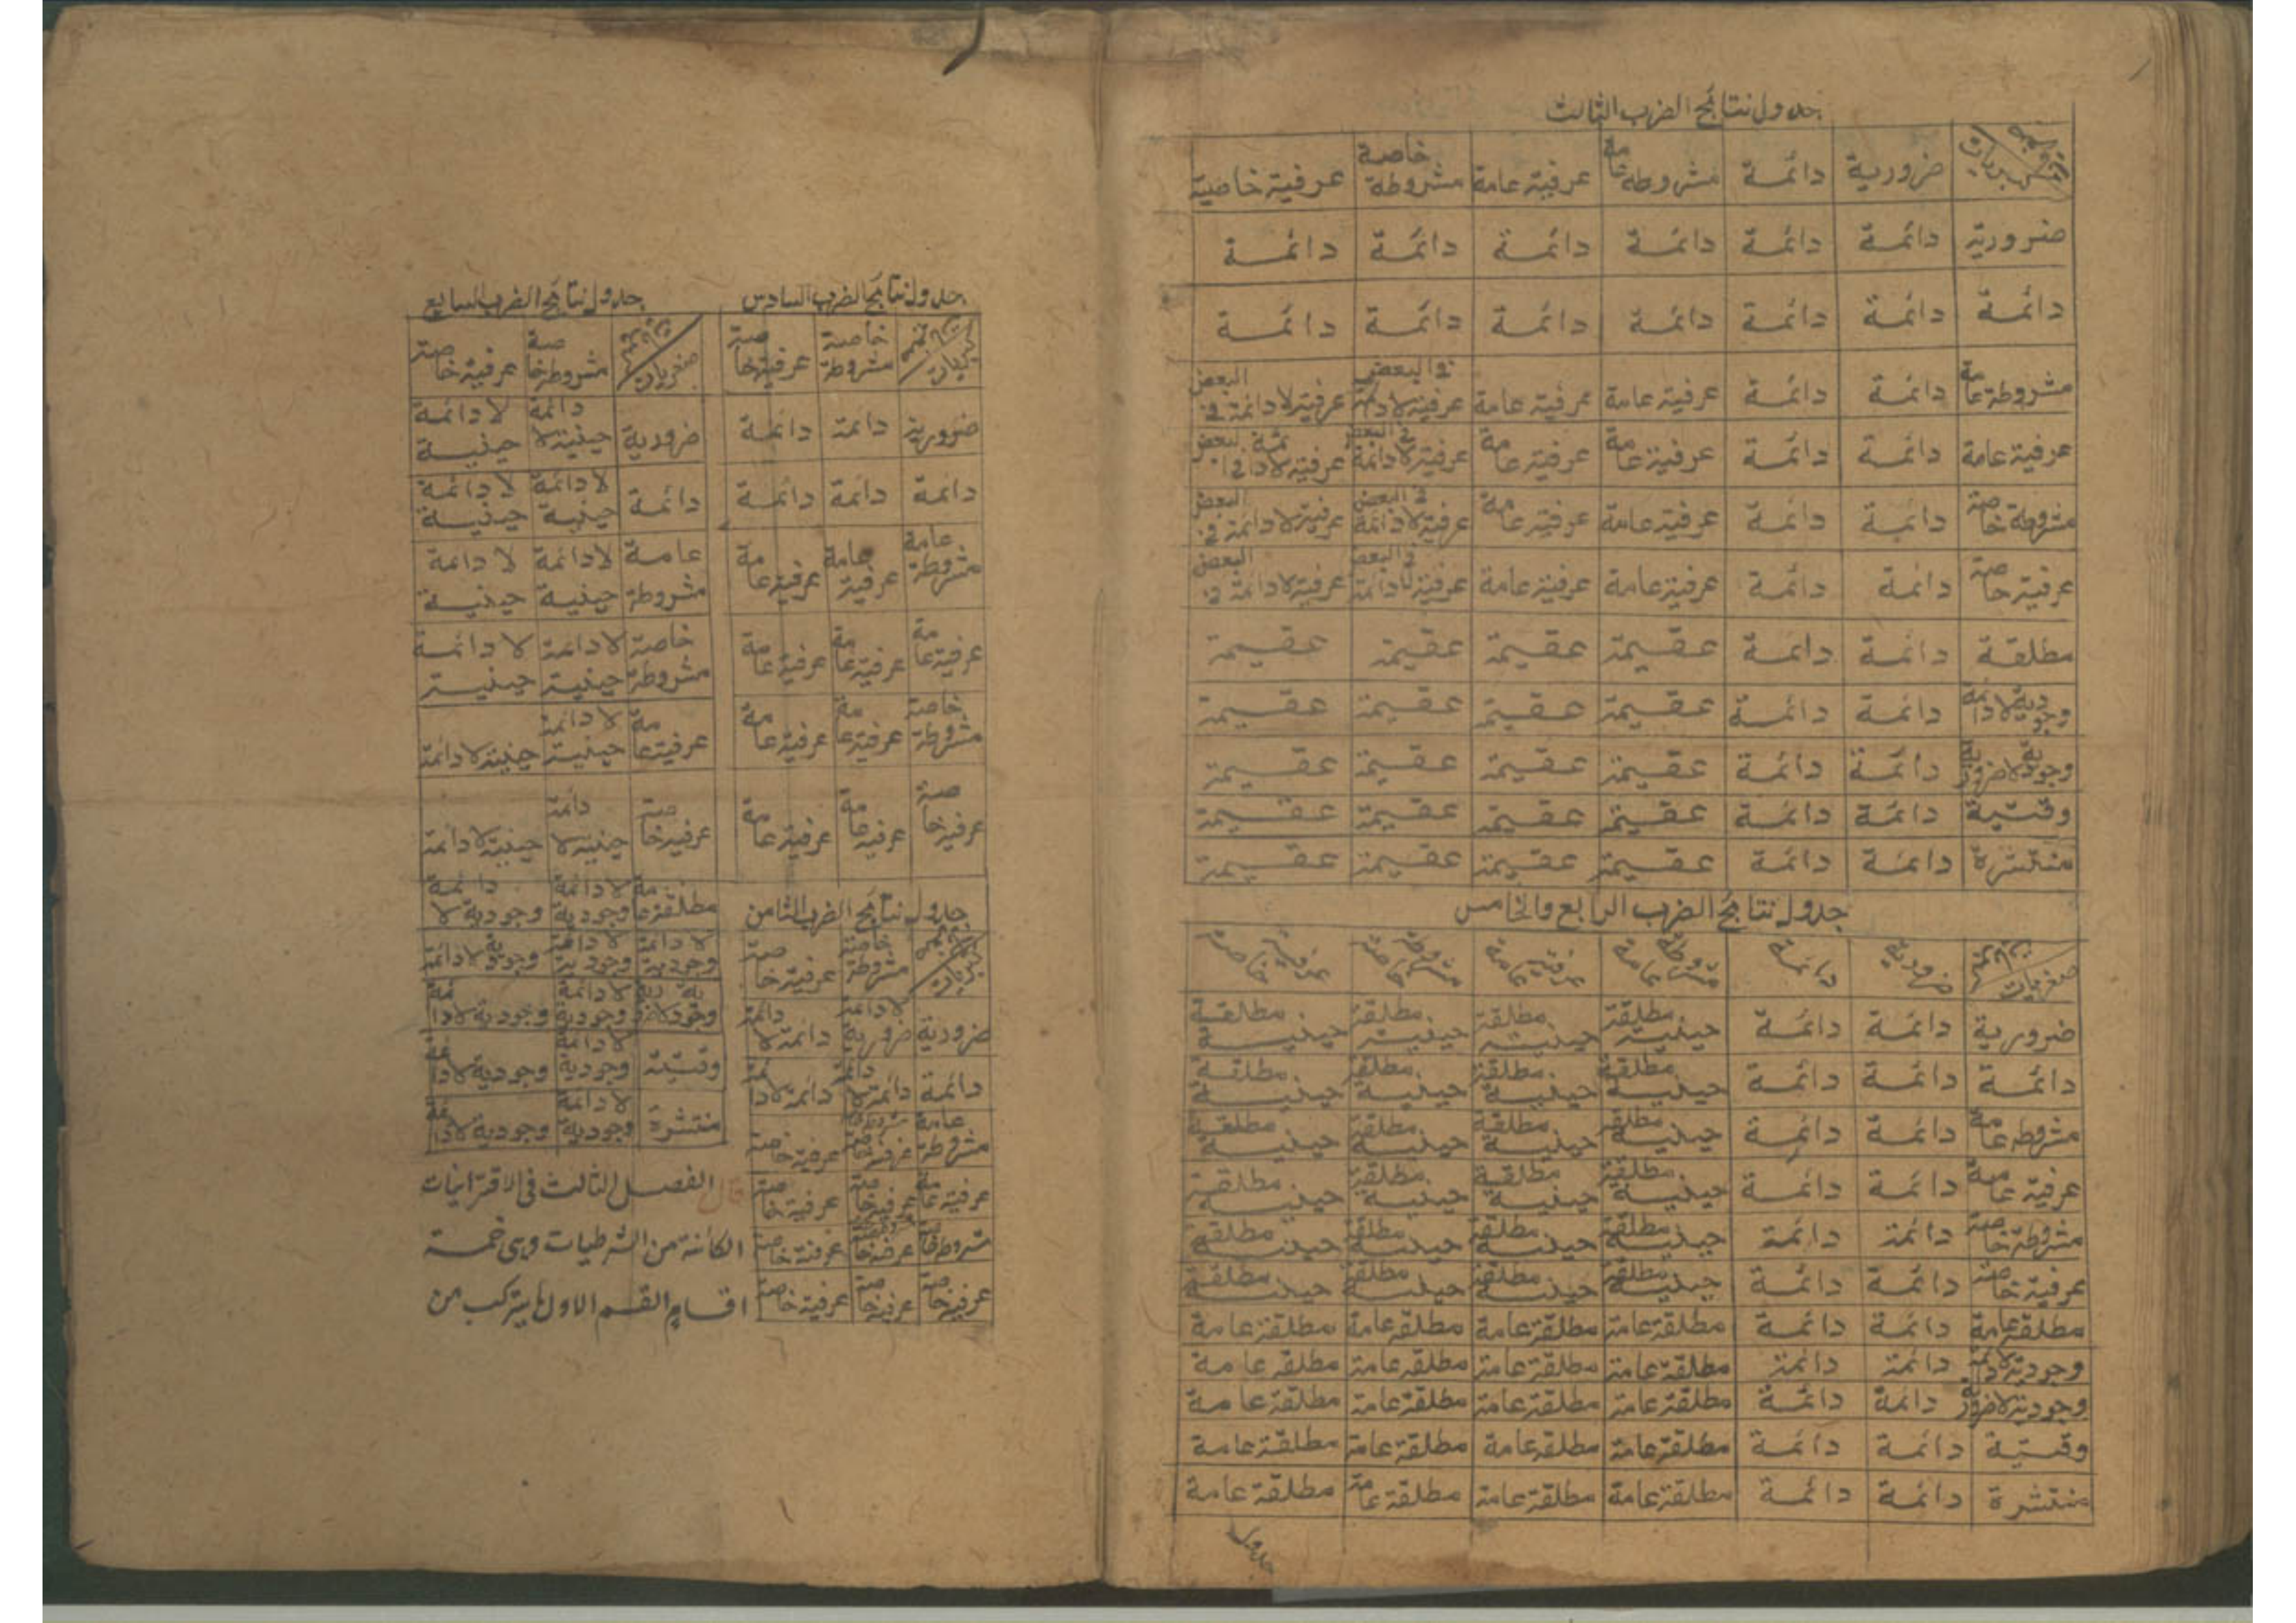 جدول نتائج الضرب الثالث
ضرورية دائمة مشروطة عامة عرفية عامة مشروطة خاصة عرفية خاصة
ضرورية دائمة دائمة دائمة دائمة دائمة دائمة
دائمة دائمة دائمة دائمة دائمة دائمة دائمة
مشروطة عامة دائمة دائمة عرفية عامة عرفية عامة عرفية لا دائمة في البعض عرفية لا دائمة في البعض
عرفية عامة دائمة دائمة عرفية عامة عرفية عامة عرفية لا دائمة في البعض عرفية لا دائمة في البعض
مشروطة خاصة دائمة دائمة عرفية عامة عرفية عامة عرفية لا دائمة في البعض عرفية لا دائمة في البعض
عرفية خاصة دائمة دائمة عرفية عامة عرفية عامة عرفية لا دائمة في البعض عرفية لا دائمة في البعض
مطلقة دائمة دائمة عقيمة عقيمة عقيمة عقيمة
وجودية لا دائمة دائمة دائمة عقيمة عقيمة عقيمة عقيمة
وجودية لا ضرورية دائمة دائمة عقيمة عقيمة عقيمة عقيمة
وقتية دائمة دائمة عقيمة عقيمة عقيمة عقيمة
منتشرة دائمة دائمة عقيمة عقيمة عقيمة عقيمة
جدول نتائج الضرب الرابع والخامس
صغريات ضرورية دائمة مشروطة عامة عرفية عامة مشروطة خاصة عرفية خاصة
ضرورية دائمة دائمة مطلقة حينية مطلقة حينية مطلقة حينية مطلقة حينية
دائمة دائمة دائمة مطلقة حينية مطلقة حينية مطلقة حينية مطلقة حينية
مشروطه عامة دائمة دائمة مطلقة حينية مطلقة حينية مطلقة حينية مطلقة حينية
عرفية عامة دائمة دائمة مطلقة حينية مطلقة حينية مطلقة حينية مطلقة حينية
مشروطة خاصة دائمة دائمة مطلقة حينية مطلقة حينية مطلقة حينية مطلقة حينية
عرفية خاصة دائمة دائمة مطلقة حينية مطلقة حينية مطلقة حينية مطلقة حينية
مطلقة عامة دائمة دائمة مطلقة عامة مطلقة عامة مطلقة عامة مطلقة عامة
وجودية لا دائمة دائمة دائمة مطلقة عامة مطلقة عامة مطلقة عامة مطلقة عامة
وجودية لا ضرورية دائمة دائمة مطلقة عامة مطلقة عامة مطلقة عامة مطلقة عامة
وقتية دائمة دائمة مطلقة عامة مطلقة عامة مطلقة عامة مطلقة عامة
منتشرة دائمة دائمة مطلقة عامة مطلقة عامة مطلقة عامة مطلقة عامة
جدول
جدول نتائج الضرب السادس
كبريات مشروطة خاصة عرفية خاصة
ضرورية دائمة دائمة
دائمة دائمة دائمة
مشروطة عامة عرفية عامة عرفية عامة
عرفية عامة عرفية عامة عرفية عامة
مشروطة خاصة عرفية عامة عرفية عامة
عرفية خاصة عرفية عامة عرفية عامة
جدول نتائج الضرب الثامن
كبريات مشروطة خاصة عرفية خاصة
ضرورية ضرورية لا دائمة دائمة لا دائمة
دائمة دائمة لا دائمة دائمة لا دائمة
مشروطة عامة عرفية خاصة
عرفية عامة عرفية خاصة عرفية خاصة
مشروطة خاصة عرفية خاصة
عرفية خاصة عرفية خاصة عرفية خاصة
جدول نتائج الضرب السابع
صغريات مشروطة خاصة عرفية خاصة
ضرورية حينية لا دائمة حينية لا دائمة
دائمة حينية لا دائمة حينية لا دائمة
مشروطة عامة حينية لا دائمة حينية لا دائمة
مشروطة خاصة حينية لا دائمة حينية لا دائمة
عرفية عامة حينية لا دائمة حينية لا دائمة
عرفية خاصة حينية لا دائمة حينية لا دائمة
مطلقة عامة وجودية لا دائمة وجودية لا دائمة
وجودية لا دائمة وجودية لا دائمة وجودية لا دائمة
وجودية لا ضرورية وجودية لا دائمة وجودية لا دائمة
وقتية وجودية لا دائمة وجودية لا دائمة
منتشرة وجودية لا دائمة وجودية لا دائمة
قال الفصل الثالث في الاقترانيات
الكائنة من الشرطيات وهي خمسة
اقسام القسم الاول ما يتركب من